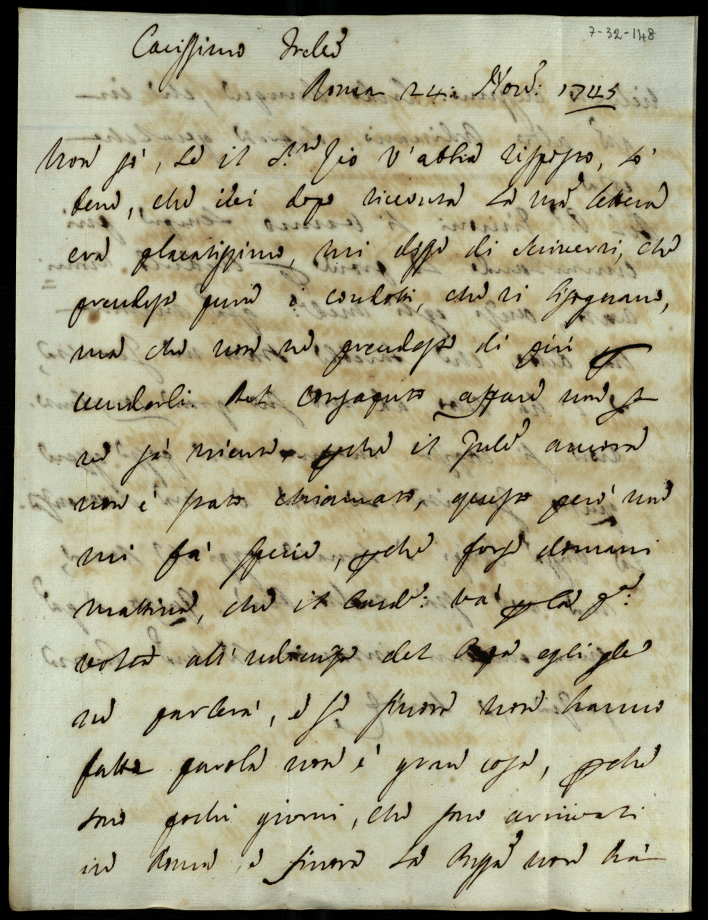 7-32-148
Carissimo Frełło
Roma 24: Nov.e: 1745
Non sò, se il S.re Zio v'abbia risposto, sò
bene, che ieri dopo ricevuta la vra lettera
era placatissimo, mi disse di scrivervi, che
prendeste pure i condotti, che vi bisognano,
ma che non ne prendeste di più p
venderli. Del consaputo affare non si
sà già niente, pche il Pñłe ancora
non è stato chiamato, questo però non
mi fà specie, pche forse domani
mattina, che il Card.e: và p la p.a:
volta all'udienza del Papa egli gle
ne parlerà, e se finora non hanno
fatta parola non è gran cosa, pche
sono pochi giorni, che sono arrivati
in Roma, e finora la non hà